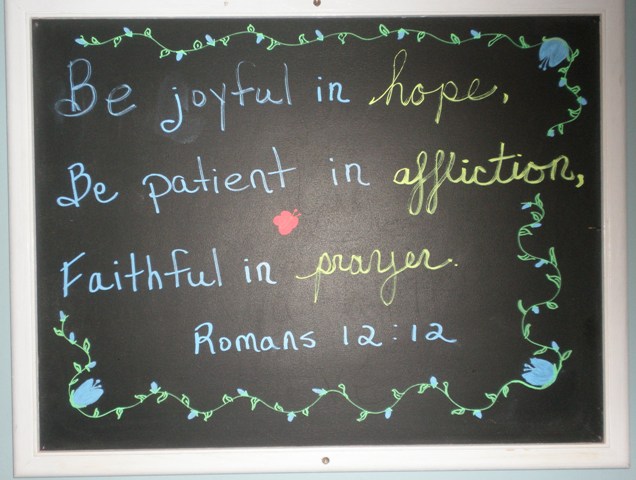 Be joyful in hope,
Be patient in affliction,
Faithful in prayer.
Romans 12:12